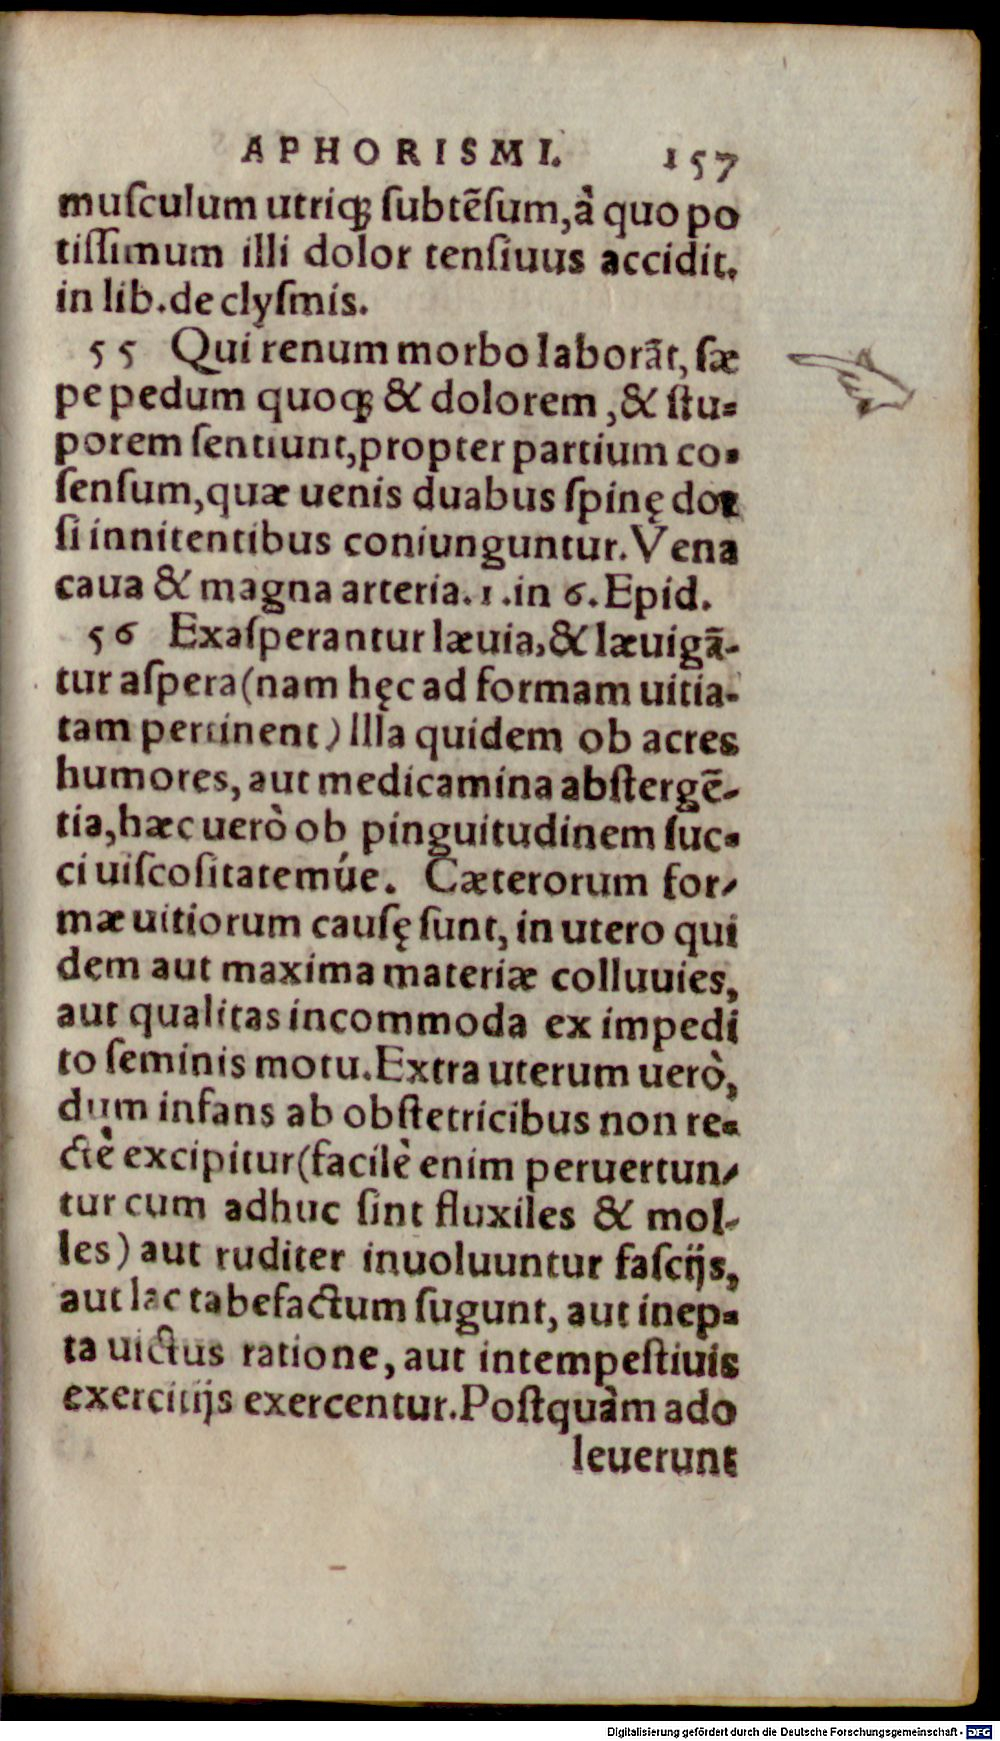 APHORISMI. 157
muſculum utriq; ſubtẽſum, à quo po
tiſſimum illi dolor tenſiuus accidit.
in lib. de clyſmis.
55 Qui renum morbo laborãt, ſæ
pe pedum quoq; & dolorem, & ſtu-
porem ſentiunt, propter partium co-
ſenſum, quæ uenis duabus ſpinę dor
ſi innitentibus coniunguntur. Vena
caua & magna arteria. 1. in 6. Epid.
56 Exaſperantur læuia, & læuigã-
tur aſpera (nam hęc ad formam uitia-
tam pertinent) Illa quidem ob acres
humores, aut medicamina abſtergẽ-
tia, hæc uerò ob pinguitudinem ſuc-
ci uiſcoſitatemúe. Cæterorum for-
mæ uitiorum cauſę ſunt, in utero qui
dem aut maxima materiæ colluuies,
aut qualitas incommoda ex impedi
to ſeminis motu. Extra uterum uerò,
dum infans ab obſtetricibus non re-
ctè excipitur (facilè enim peruertun-
tur cum adhuc ſint fluxiles & mol-
les) aut ruditer inuoluuntur faſcijs,
aut lac tabefactum ſugunt, aut inep-
ta uictus ratione, aut intempeſtiuis
exercitijs exercentur. Poſtquàm ado
leuerunt
Digitalisierung gefördert durch die Deutsche Forschungsgemeinschaft - DFG